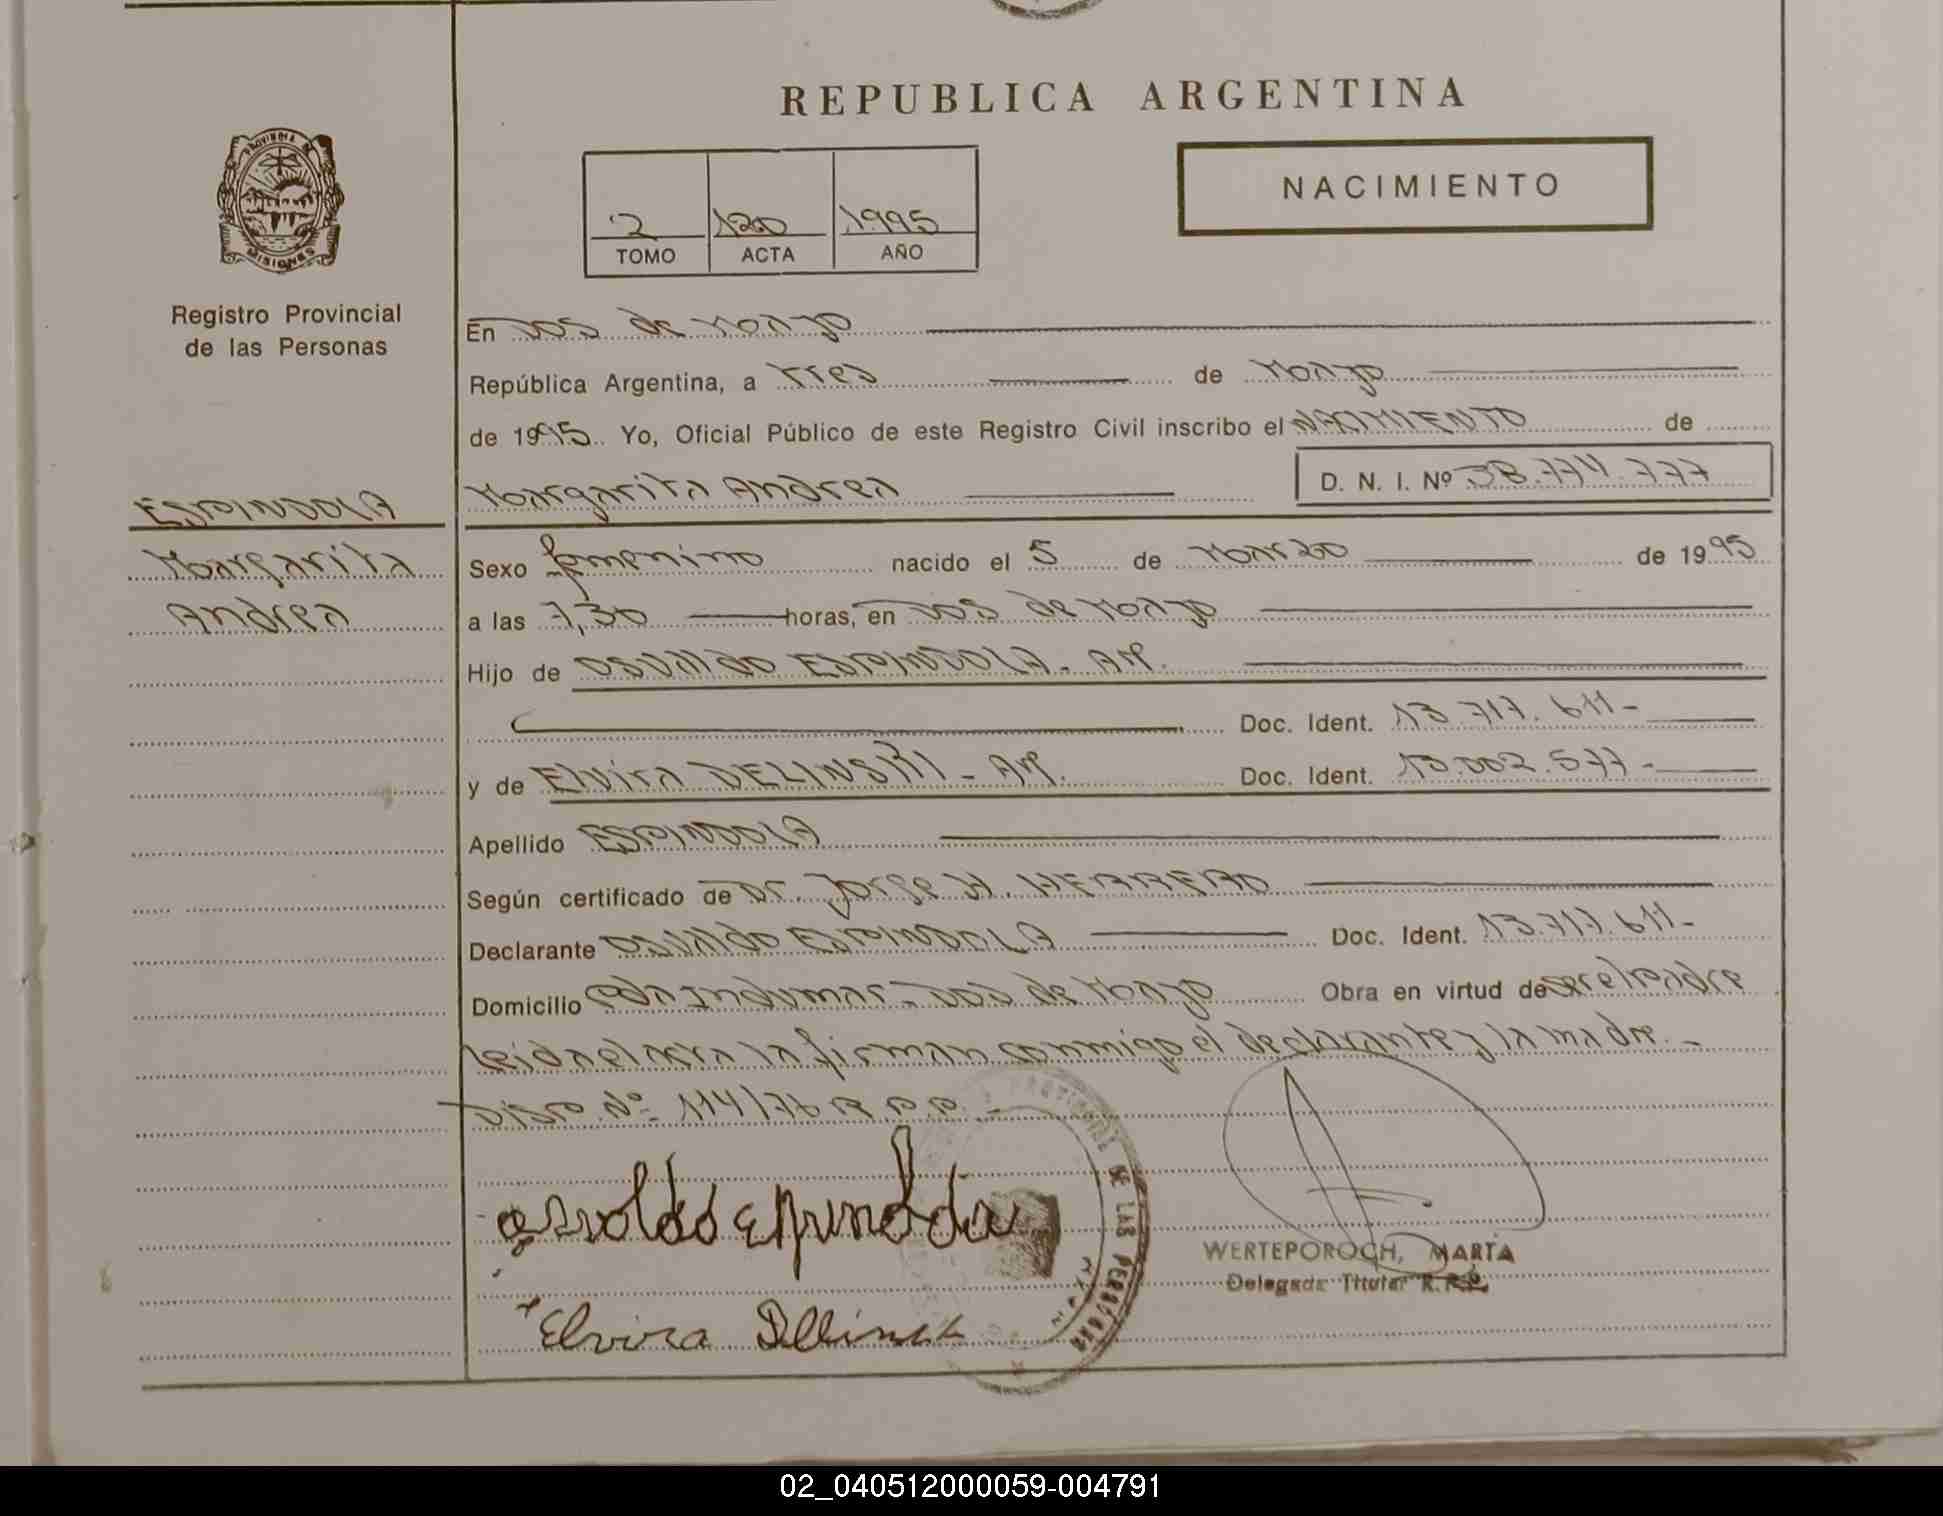 REPUBLICA ARGENTINA
PROVINCIA DE
MISIONES
Registro Provincial
de las Personas
2 120 1995
TOMO ACTA AÑO
NACIMIENTO
En Dos de Mayo
República Argentina, a tres de Mayo
de 1995. Yo, Oficial Público de este Registro Civil inscribo el NACIMIENTO de
ESPINDOLA
Margarita Andrea D. N. I. Nº 38.774.777
Margarita
Andrea
Sexo femenino nacido el 5 de Marzo de 1995
a las 7,30 horas, en Dos de Mayo
Hijo de OSVAldo ESPINDOLA - Ar.
Doc. Ident. 13.717.611-
y de Elvira DELINSKI - Ar. Doc. Ident. 13.002.577-
Apellido ESPINDOLA
Según certificado de Dr. Jorge W. HERRERO
Declarante OSVAldo ESPINDOLA Doc. Ident. 13.717.611-
Domicilio Indumar - Dos de Mayo Obra en virtud de ser el padre
Leida el acta la firman conmigo el declarante y la madre. -
DISP. Nº 114/76 R.P.P. -
osvaldo espindola
WERTEPOROCH, MARTA
Delegada Titular R.P.P.
Elvira
02_040512000059-004791